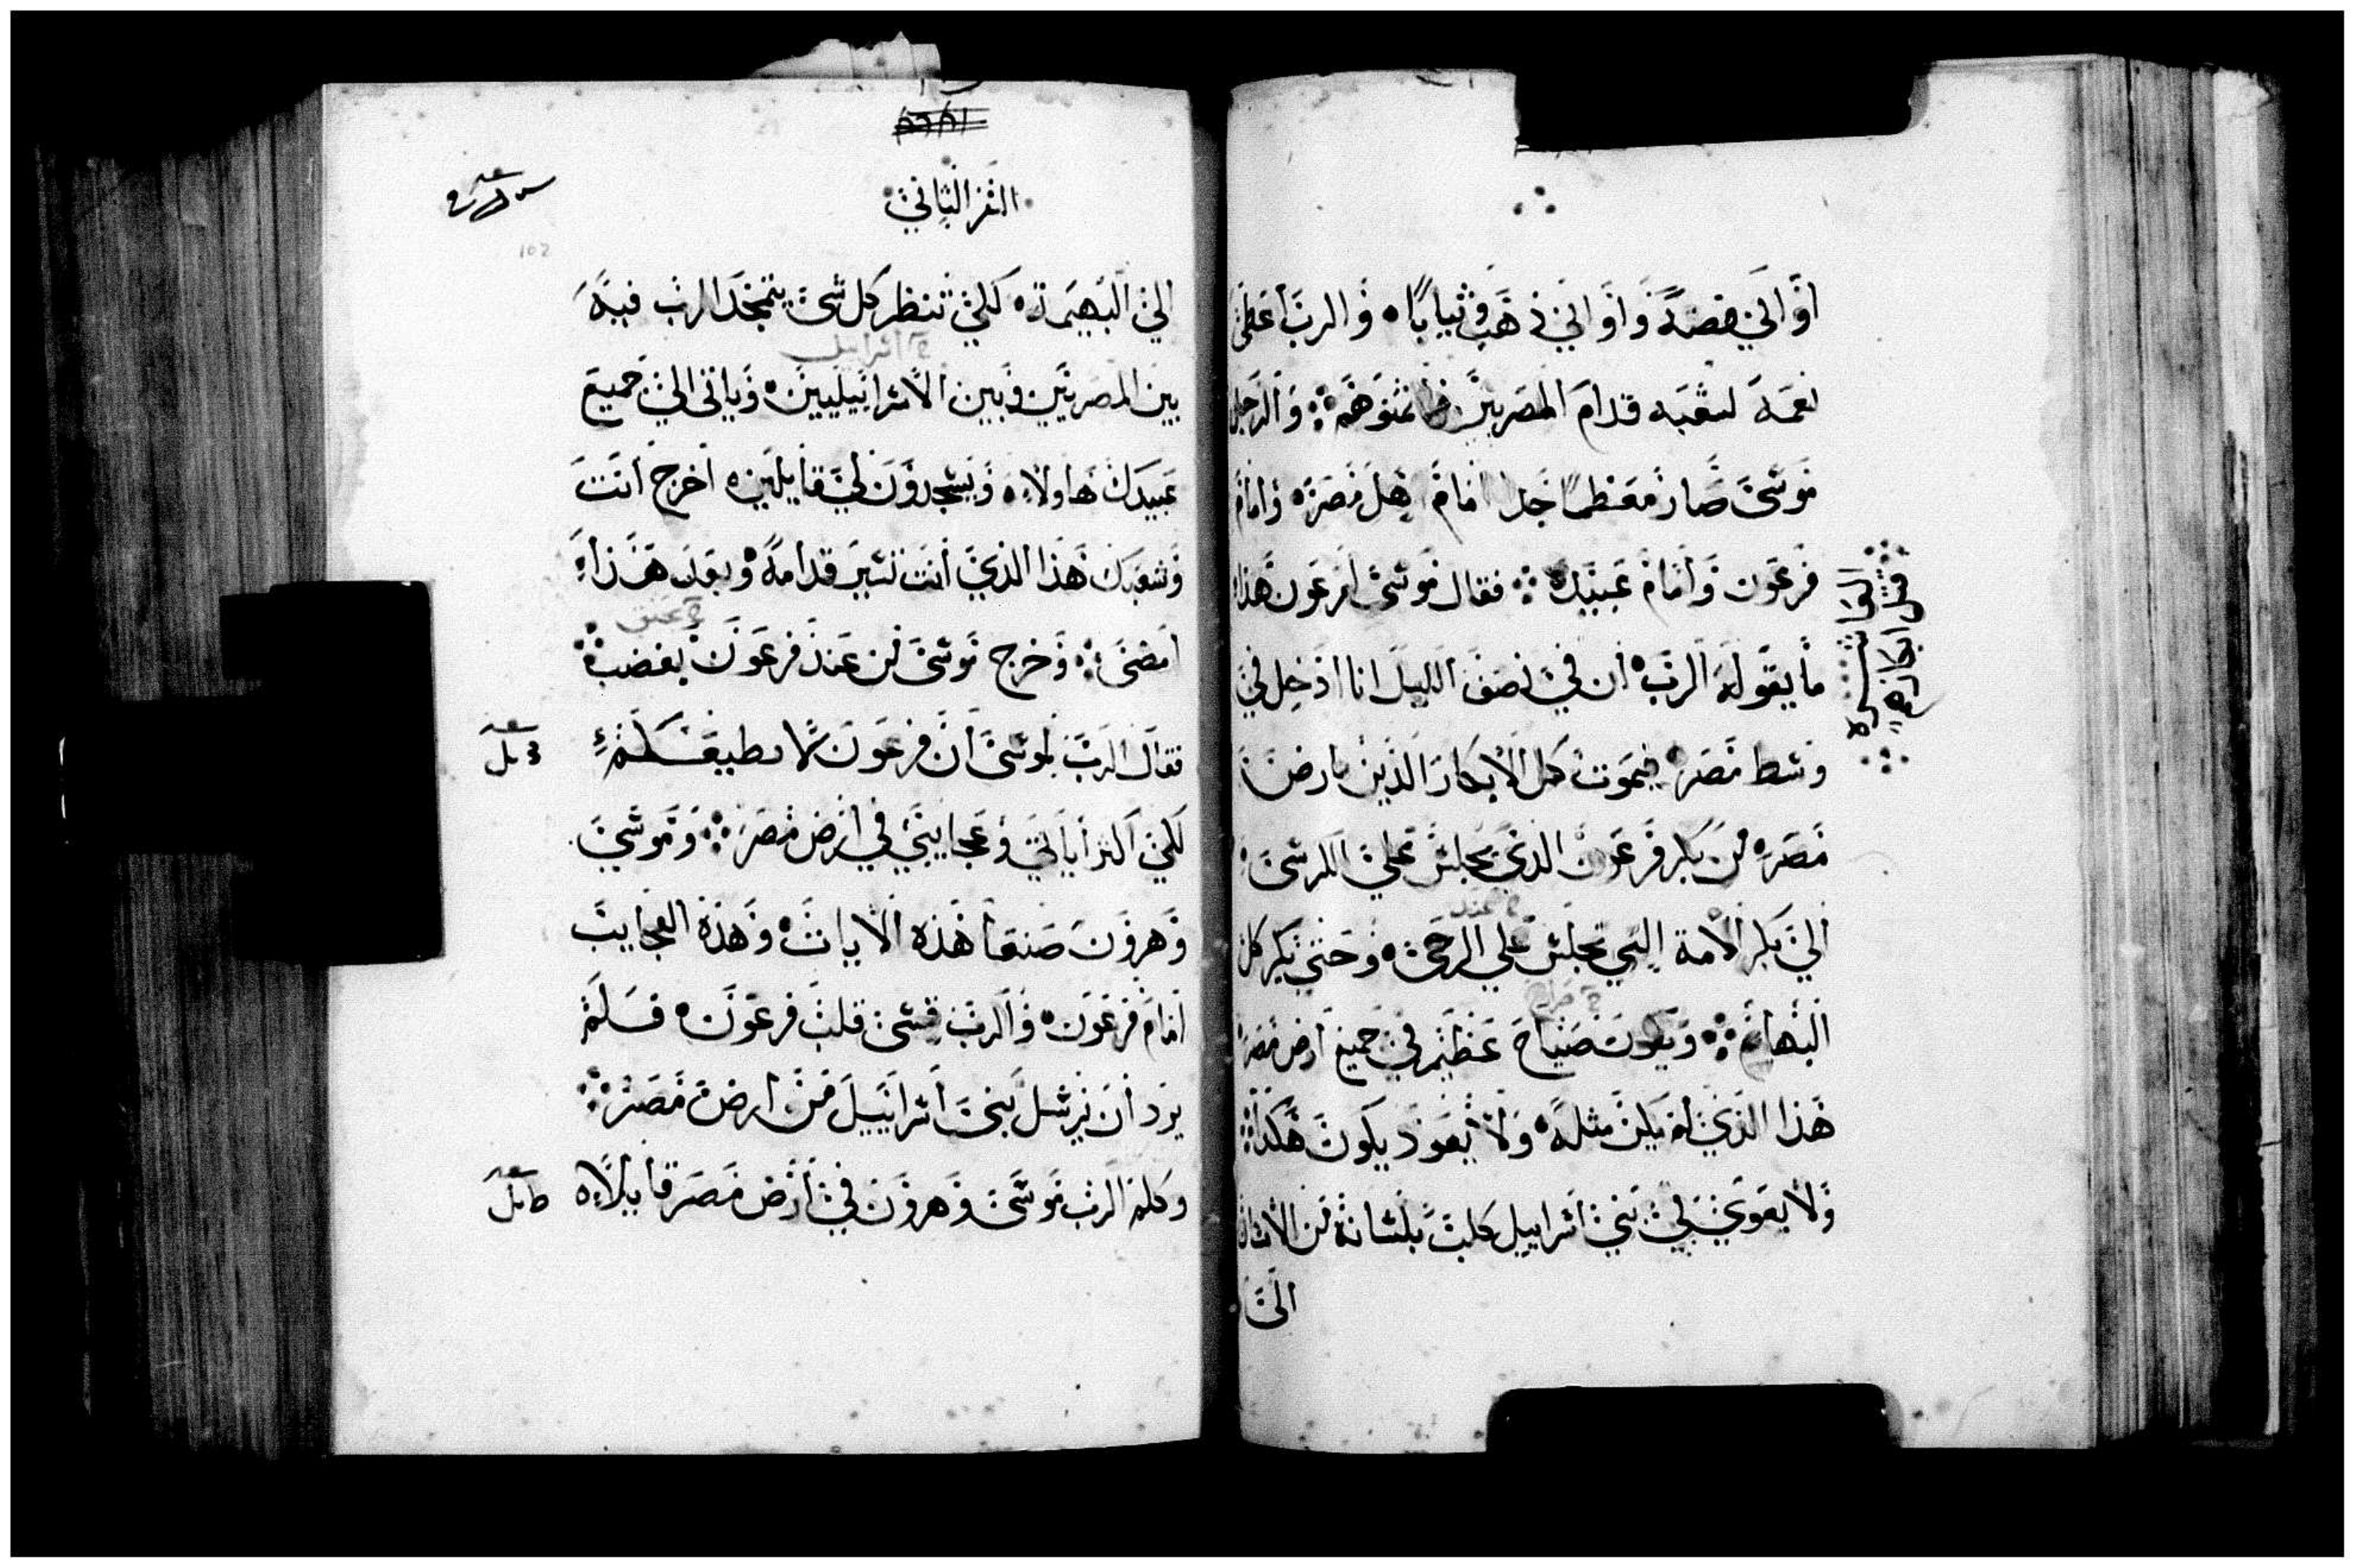 اوانى فضة واوانى ذهب وثيابا والرب اعطى
نعمة لشعبه قدام المصريين فاعثوهم والرجل
موسى صار معظما جدا امام اهل مصر وامام
فرعون وامام عبيده فقال موسى لفرعون هذا
ما يقوله الرب ان في نصف الليل انا ادخل في
وسط مصر فيموت كل الابكار الذين بارض
مصر من بكر فرعون الذي يجلس على الكرسى
الي بكر الامة التي تجلس علي الرحى وحتي بكر كل
البهائم ويكون صياح عظيم في جميع ارض مصر
هذا الذي لم يكن مثله ولا يعود يكون هكذا
ولا يعوي في بني اسراييل كلب بلسانه من الانسان
الى
السفر الثاني
102
الي البهيمة لكي تنظر كل شى يتمجد الرب فيه
اسراييل
بين المصريين وبين الاسراييليين وياتى الي جميع
عبيدك هاولاء ويسجدون لي قايلين اخرج انت
وشعبك هذا الذي انت تسير قدامه وبعد هذا
امضى وخرج موسى من عند فرعون بغضب
فقال الرب لموسى ان فرعون لا يطيعكم
لكي اكثر اياتي وعجايبي في ارض مصر وموسي
وهرون صنعا هذه الايات وهذه العجايب
امام فرعون والرب قسى قلب فرعون فلم
يرد ان يرسل بني اسراييل من ارض مصر
وكلم الرب موسى وهرون في ارض مصر قايلا